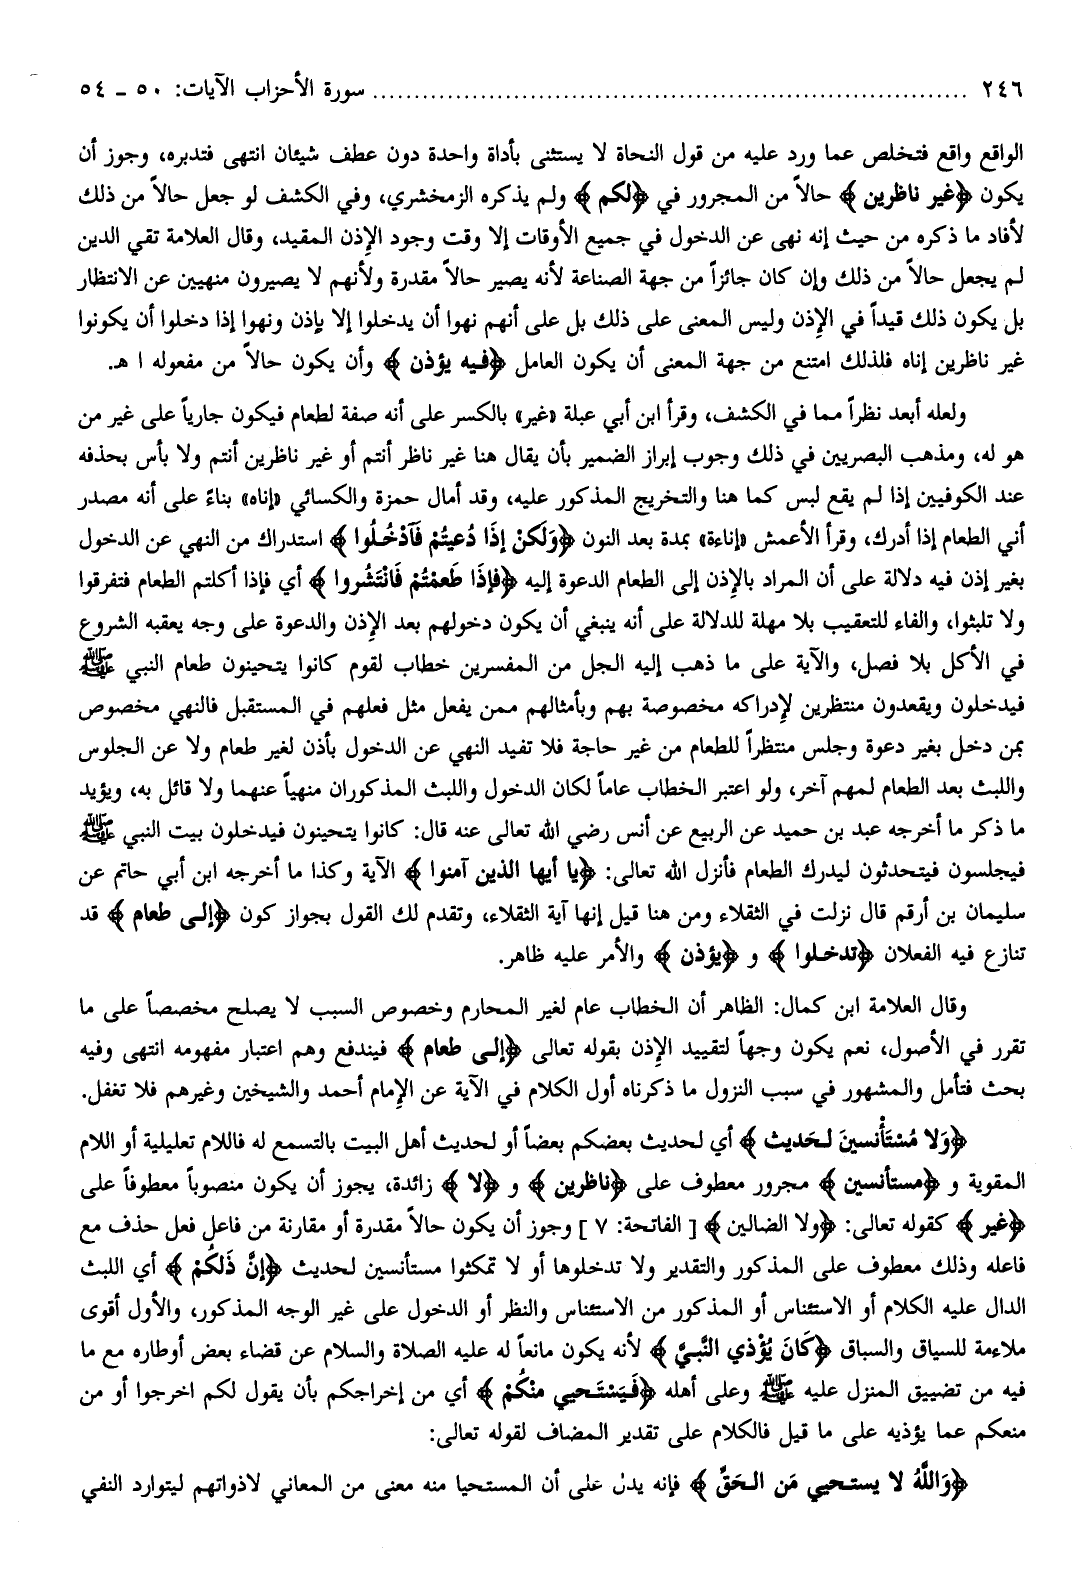 ٢٤٦ ........................................................................ سورة الأحزاب الآيات: ٥٠ ـ ٥٤
الواقع واقع فتخلص عما ورد عليه من قول النحاة لا يستثنى بأداة واحدة دون عطف شيئان انتهى فتدبره، وجوز أن
يكون ﴿غير ناظرين﴾ حالاً من المجرور في ﴿لكم﴾ ولم يذكره الزمخشري، وفي الكشف لو جعل حالاً من ذلك
لأفاد ما ذكره من حيث إنه نهى عن الدخول في جميع الأوقات إلا وقت وجود الإذن المقيد، وقال العلامة تقي الدين
لم يجعل حالاً من ذلك وإن كان جائزاً من جهة الصناعة لأنه يصير حالاً مقدرة ولأنهم لا يصيرون منهيين عن الانتظار
بل يكون ذلك قيداً في الإذن وليس المعنى على ذلك بل على أنهم نهوا أن يدخلوا إلا بإذن ونهوا إذا دخلوا أن يكونوا
غير ناظرين إناه فلذلك امتنع من جهة المعنى أن يكون العامل ﴿فيه يؤذن﴾ وأن يكون حالاً من مفعوله ا هـ.
ولعله أبعد نظراً مما في الكشف، وقرأ ابن أبي عبلة «غير» بالكسر على أنه صفة لطعام فيكون جارياً على غير من
هو له، ومذهب البصريين في ذلك وجوب إبراز الضمير بأن يقال هنا غير ناظر أنتم أو غير ناظرين أنتم ولا بأس بحذفه
عند الكوفيين إذا لم يقع لبس كما هنا والتخريج المذكور عليه، وقد أمال حمزة والكسائي «إناه» بناءً على أنه مصدر
أني الطعام إذا أدرك، وقرأ الأعمش «إناءة» بمدة بعد النون ﴿وَلَكنْ إذَا دُعيتُمْ فَآدْخُلُوا﴾ استدراك من النهي عن الدخول
بغير إذن فيه دلالة على أن المراد بالإذن إلى الطعام الدعوة إليه ﴿فإذَا طَعمْتُمْ فَانْتَشُروا﴾ أي فإذا أكلتم الطعام فتفرقوا
ولا تلبثوا، والفاء للتعقيب بلا مهلة للدلالة على أنه ينبغي أن يكون دخولهم بعد الإذن والدعوة على وجه يعقبه الشروع
في الأكل بلا فصل، والآية على ما ذهب إليه الجل من المفسرين خطاب لقوم كانوا يتحينون طعام النبي ﷺ
فيدخلون ويقعدون منتظرين لإدراكه مخصوصة بهم وبأمثالهم ممن يفعل مثل فعلهم في المستقبل فالنهي مخصوص
بمن دخل بغير دعوة وجلس منتظراً للطعام من غير حاجة فلا تفيد النهي عن الدخول بأذن لغير طعام ولا عن الجلوس
واللبث بعد الطعام لمهم آخر، ولو اعتبر الخطاب عاماً لكان الدخول واللبث المذكوران منهياً عنهما ولا قائل به، ويؤيد
ما ذكر ما أخرجه عبد بن حميد عن الربيع عن أنس رضي الله تعالى عنه قال: كانوا يتحينون فيدخلون بيت النبي ﷺ
فيجلسون فيتحدثون ليدرك الطعام فأنزل الله تعالى: ﴿يا أيها الذين آمنوا﴾ الآية وكذا ما أخرجه ابن أبي حاتم عن
سليمان بن أرقم قال نزلت في الثقلاء ومن هنا قيل إنها آية الثقلاء، وتقدم لك القول بجواز كون ﴿إلى طعام﴾ قد
تنازع فيه الفعلان ﴿تدخلوا﴾ و ﴿يؤذن﴾ والأمر عليه ظاهر.
وقال العلامة ابن كمال: الظاهر أن الخطاب عام لغير المحارم وخصوص السبب لا يصلح مخصصاً على ما
تقرر في الأصول، نعم يكون وجهاً لتقييد الإذن بقوله تعالى ﴿إلى طعام﴾ فيندفع وهم اعتبار مفهومه انتهى وفيه
بحث فتأمل والمشهور في سبب النزول ما ذكرناه أول الكلام في الآية عن الإمام أحمد والشيخين وغيرهم فلا تغفل.
﴿وَلا مُسْتَأْنسينَ لحَديث﴾ أي لحديث بعضكم بعضاً أو لحديث أهل البيت بالتسمع له فاللام تعليلية أو اللام
المقوية و ﴿مستأنسين﴾ مجرور معطوف على ﴿ناظرين﴾ و ﴿لا﴾ زائدة، يجوز أن يكون منصوباً معطوفاً على
﴿غير﴾ كقوله تعالى: ﴿ولا الضالين﴾ [ الفاتحة: ٧ ] وجوز أن يكون حالاً مقدرة أو مقارنة من فاعل فعل حذف مع
فاعله وذلك معطوف على المذكور والتقدير ولا تدخلوها أو لا تمكثوا مستأنسين لحديث ﴿إنَّ ذَلكُمْ﴾ أي اللبث
الدال عليه الكلام أو الاستئناس أو المذكور من الاستئناس والنظر أو الدخول على غير الوجه المذكور، والأول أقوى
ملاءمة للسياق والسباق ﴿كَانَ يُؤْذي النَّبيَّ﴾ لأنه يكون مانعاً له عليه الصلاة والسلام عن قضاء بعض أوطاره مع ما
فيه من تضييق المنزل عليه ﷺ وعلى أهله ﴿فَيَسْتَحيي منْكُمْ﴾ أي من إخراجكم بأن يقول لكم اخرجوا أو من
منعكم عما يؤذيه على ما قيل فالكلام على تقدير المضاف لقوله تعالى:
﴿وَاللَّهُ لا يستحيي مَن الحَقِّ﴾ فإنه يدل على أن المستحيا منه معنى من المعاني لاذواتهم ليتوارد النفي